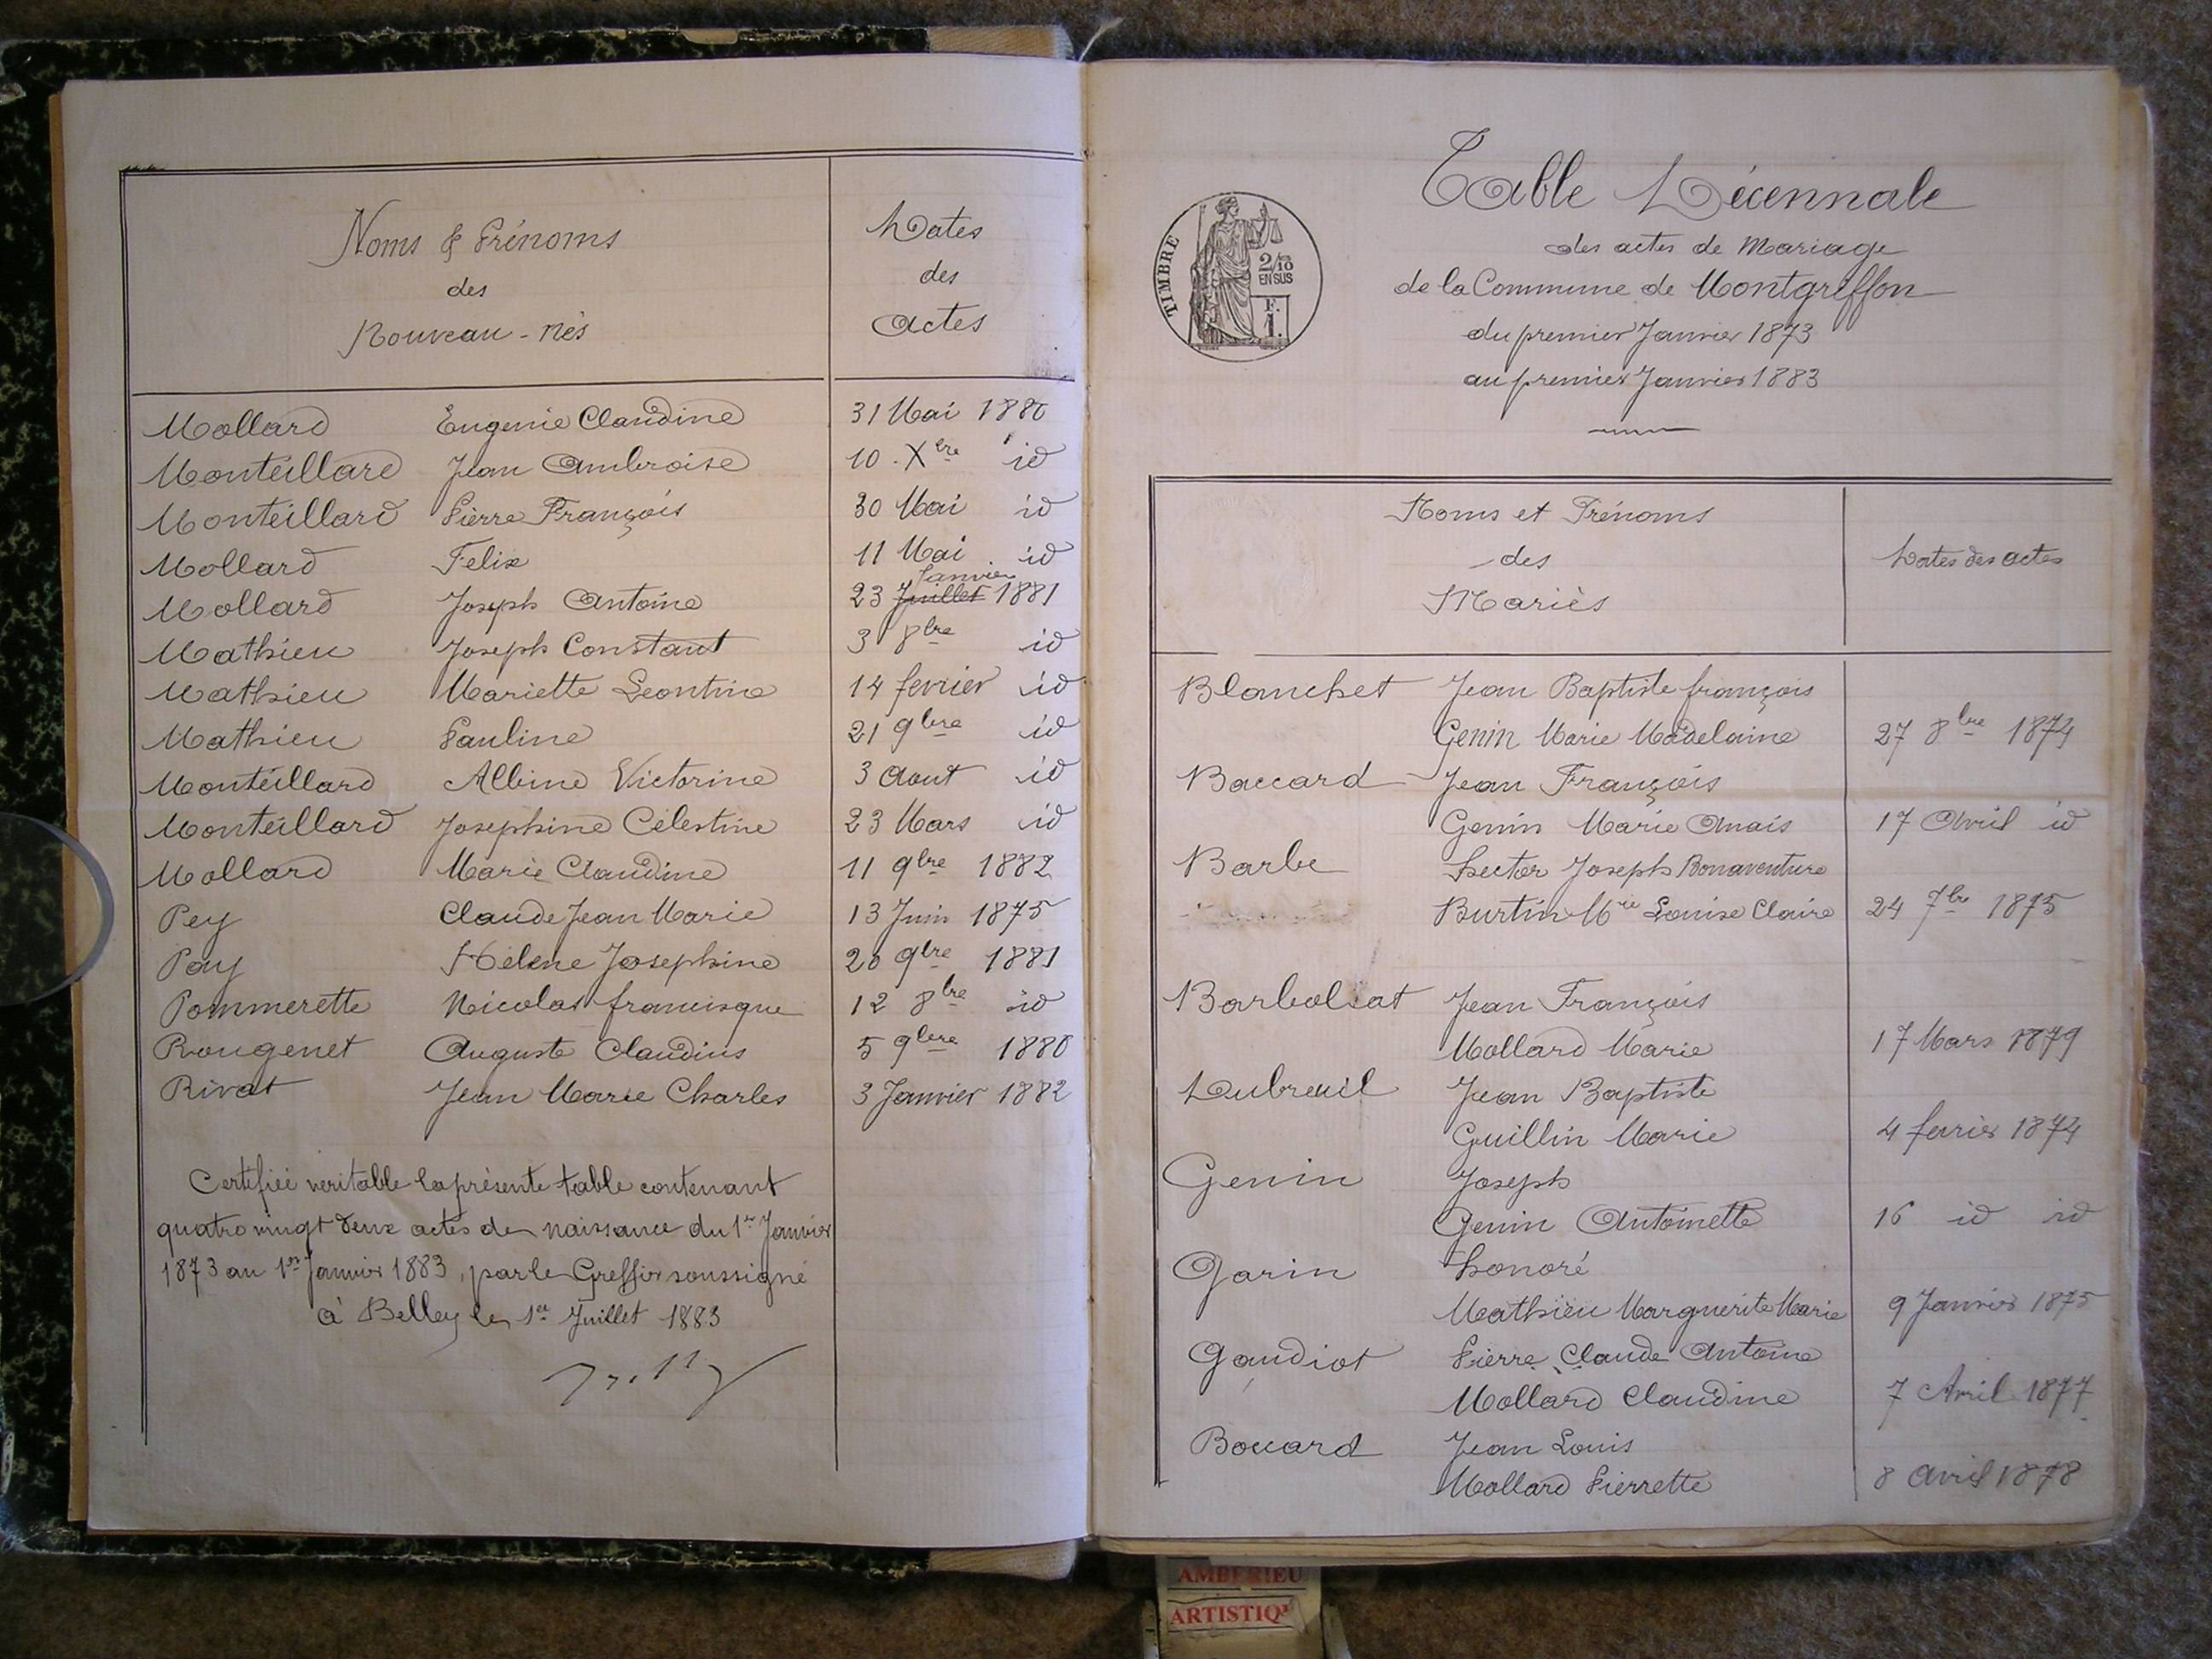 Noms & Prénoms
des
Nouveau-nés
Dates
des
Actes
Mollard Eugenie Claudine 31 Mai 1880
Monteillard Jean Ambroise 10 Xbre id
Monteillard Pierre François 30 Mai id
Mollard Felix 11 Mai id
Janvier
Mollard Joseph Antoine 23 Juillet 1881
Mathieu Joseph Constant 3 8bre id
Mathieu Mariette Leontine 14 fevrier id
Mathieu Pauline 21 9bre id
Monteillard Albine Victorine 3 Aout id
Monteillard Josephine Célestine 23 Mars id
Mollard Marie Claudine 11 9bre 1882
Pey Claude Jean Marie 13 Juin 1875
Pay Hélene Josephine 20 9bre 1881
Pommerette Nicolas francisque 12 8bre id
Rougenet Auguste Claudius 5 9bre 1880
Rivat Jean Marie Charles 3 Janvier 1882
Certifiée veritable la présente table contenant
quatre vingt deux actes de naissance du 1er Janvier
1873 au 1er Janvier 1883, par le Greffier soussigné
à Belley le 1er Juillet 1883
TIMBRE
2/10
EN SUS
F.
1.
Table Décennale
des actes de Mariage
de la Commune de Montgriffon
du premier Janvier 1873
au premier Janvier 1883
Noms et Prénoms
des
Mariés
Dates des actes
Blanchet Jean Baptiste françois
Genin Marie Madelaine 27 8bre 1874
Baccard Jean François
Genin Marie Anais 17 Avril id
Barbe hector Joseph Bonaventure
Burtin Mie Louise Claire 24 7bre 1875
Barbolat Jean François
Mollard Marie 17 Mars 1879
Dubreuil Jean Baptiste
Guillin Marie 4 fevrier 1874
Genin Joseph
Genin Antoinette 16 id id
Garin honoré
Mathieu Marguerite Marie 9 Janvier 1875
Gaudiot Pierre Claude Antoine
Mollard Claudine 7 Avril 1877
Boccard Jean Louis
Mollard Pierrette 8 avril 1878
AMBERIEU
ARTISTIQ